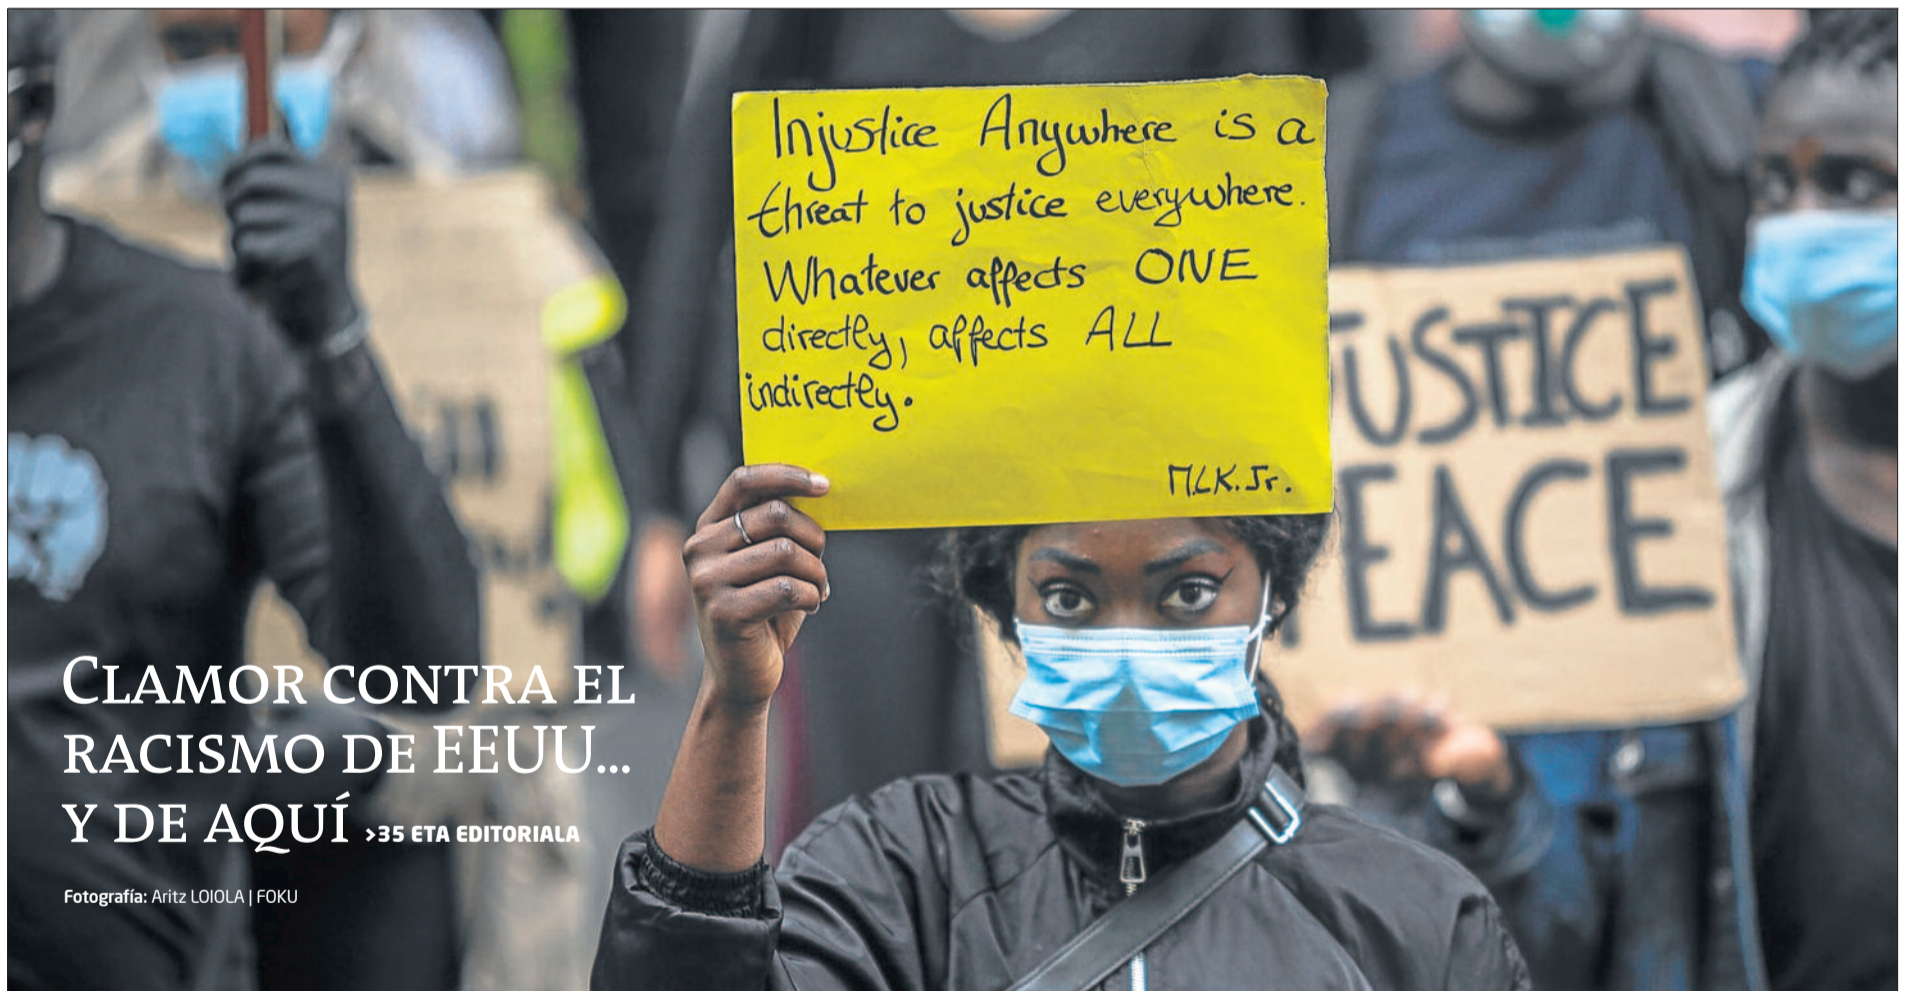 Injustice Anywhere is a
threat to justice everywhere.
Whatever affects ONE
directly, affects ALL
indirectly.
M.L.K. Jr.
JUSTICE
PEACE
CLAMOR CONTRA EL
RACISMO DE EEUU...
Y DE AQUÍ >35 ETA EDITORIALA
Fotografía: Aritz LOIOLA | FOKU